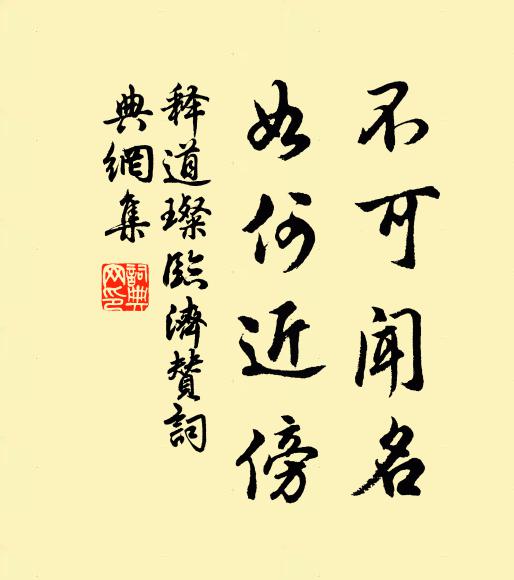 不可闻名
如何近傍
释道璨臨濟贊詞
典網集
詞典
网印